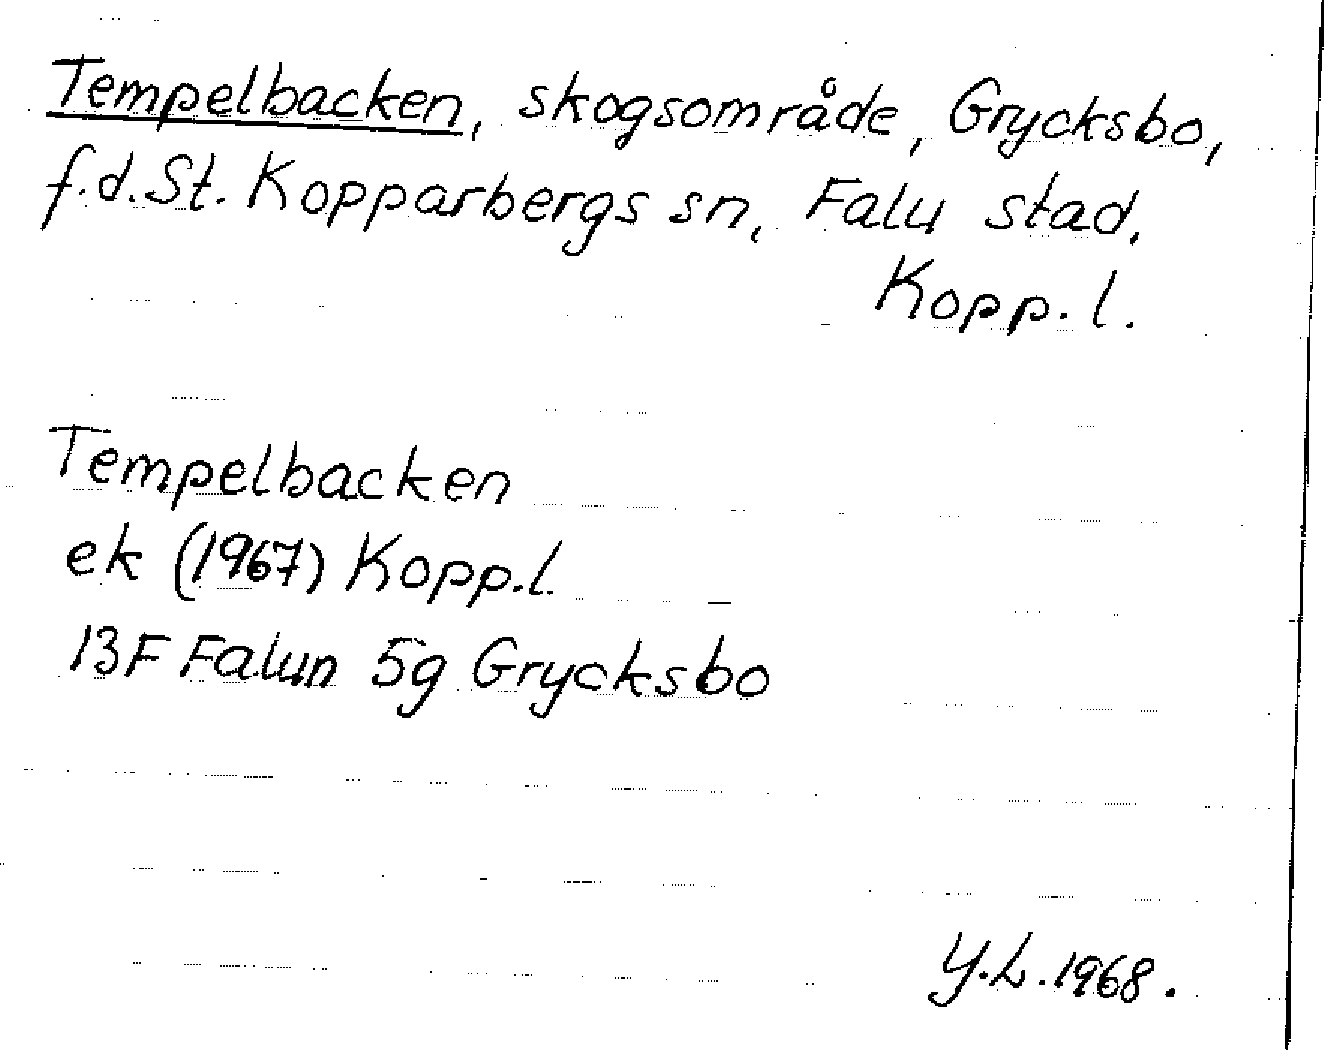 Tempelbacken, skogsområde, Grycksbo,
f.d. St. Kopparbergs sn, Falu stad,
Kopp. l.
Tempelbacken
ek (1967) Kopp.l.
13F Falun 5g Grycksbo
Y.L. 1968.